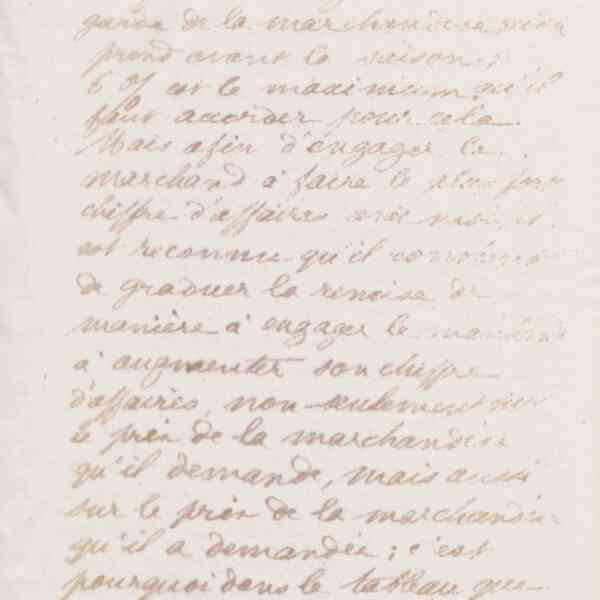 garde de la marchandise
prend avant la saison;
6 % est le maximum qu'il
faut accorder pour cela.
Mais afin d'engager le
marchand à faire le plus
chiffre d'affaires avec moi, il
est reconnu qu'il
de graduer la remise de
manière à engager le marchand
à augmenter son chiffre
d'affaires, non-seulement sur
le prix de la marchandise
qu'il demande, mais aussi
sur le prix de la marchandise
qu'il a demandée; c'est
pourquoi dans le tableau que-